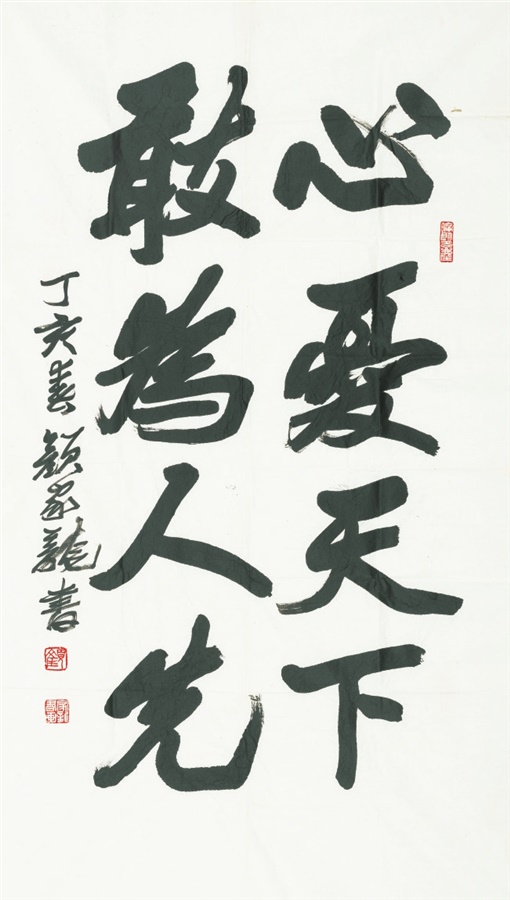 心憂天下
敢為人先
丁亥春 顏家龍書